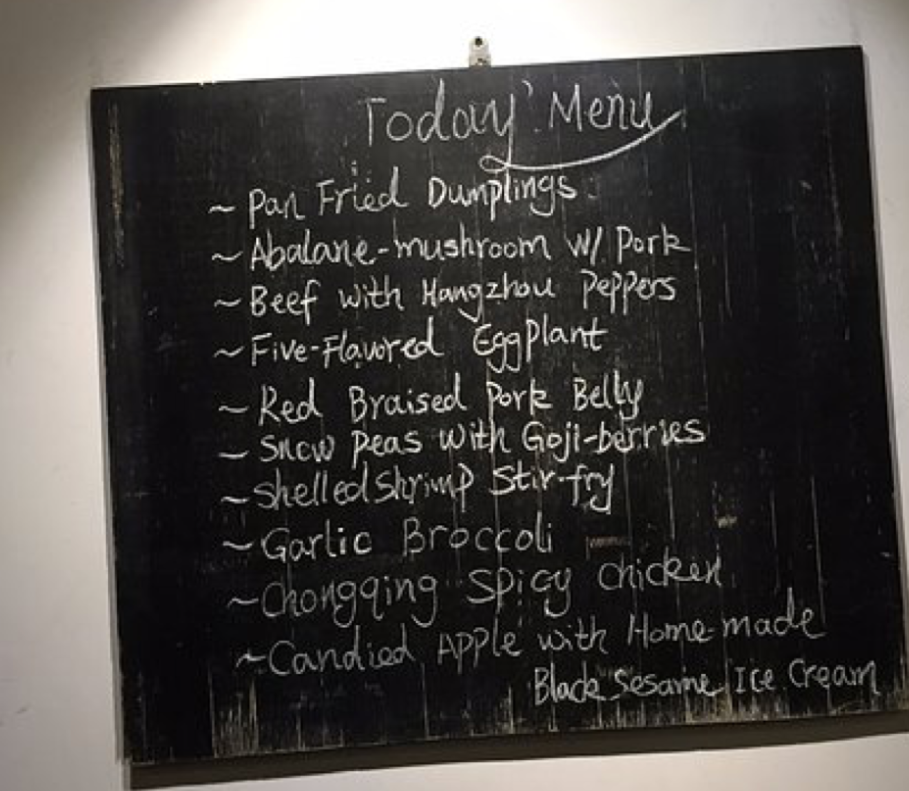 Today' Menu
~ Pan Fried Dumplings
~ Abalane-mushroom w/ Pork
~ Beef with Hangzhou Peppers
~ Five-Flavored Eggplant
~ Red Braised Pork Belly
~ Snow Peas with Goji-berries
~ Shelled Shrimp Stir-fry
~ Garlic Broccoli
~ Chongqing Spicy Chicken
~ Candied Apple with Home-made
Black Sesame Ice Cream